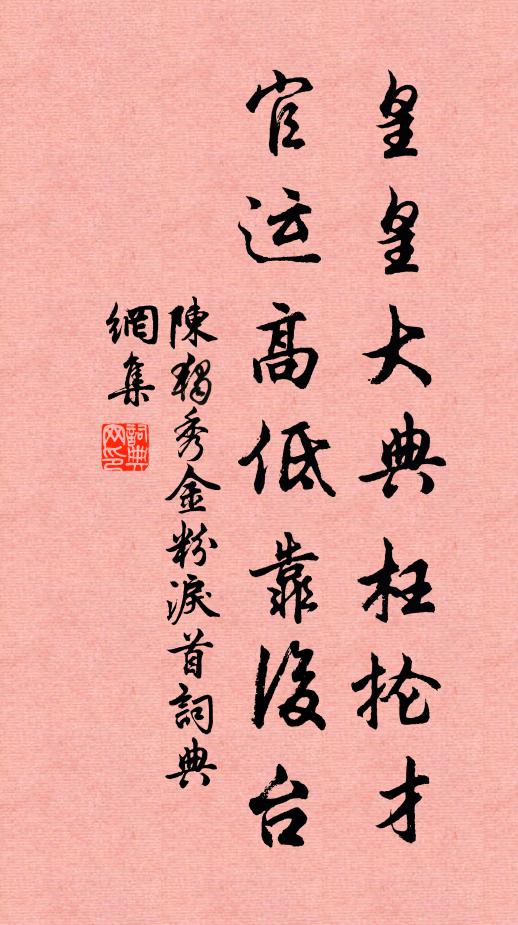 皇皇大典枉抡才
官运高低靠後台
陳獨秀金粉淚首詞典
網集
詞典網印